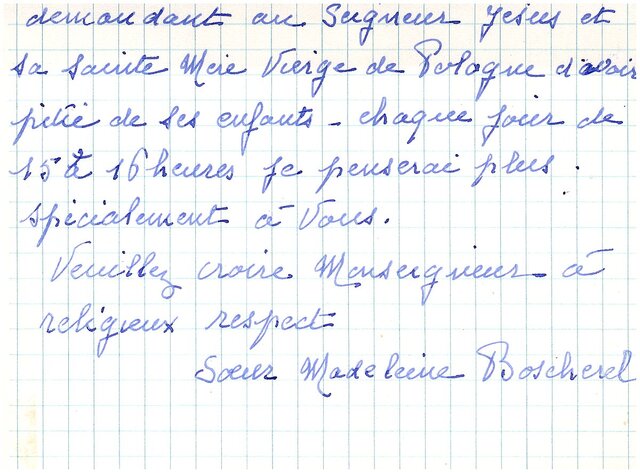 demandant au Seigneur Jésus et
sa sainte Mère Vierge de Pologne d'avoir
pitié de ses enfants - chaque jour de
15 à 16 heures je penserai plus
spécialement à Vous.
Veuillez croire Monseigneur à
religieux respect
Soeur Madeleine Boscherel